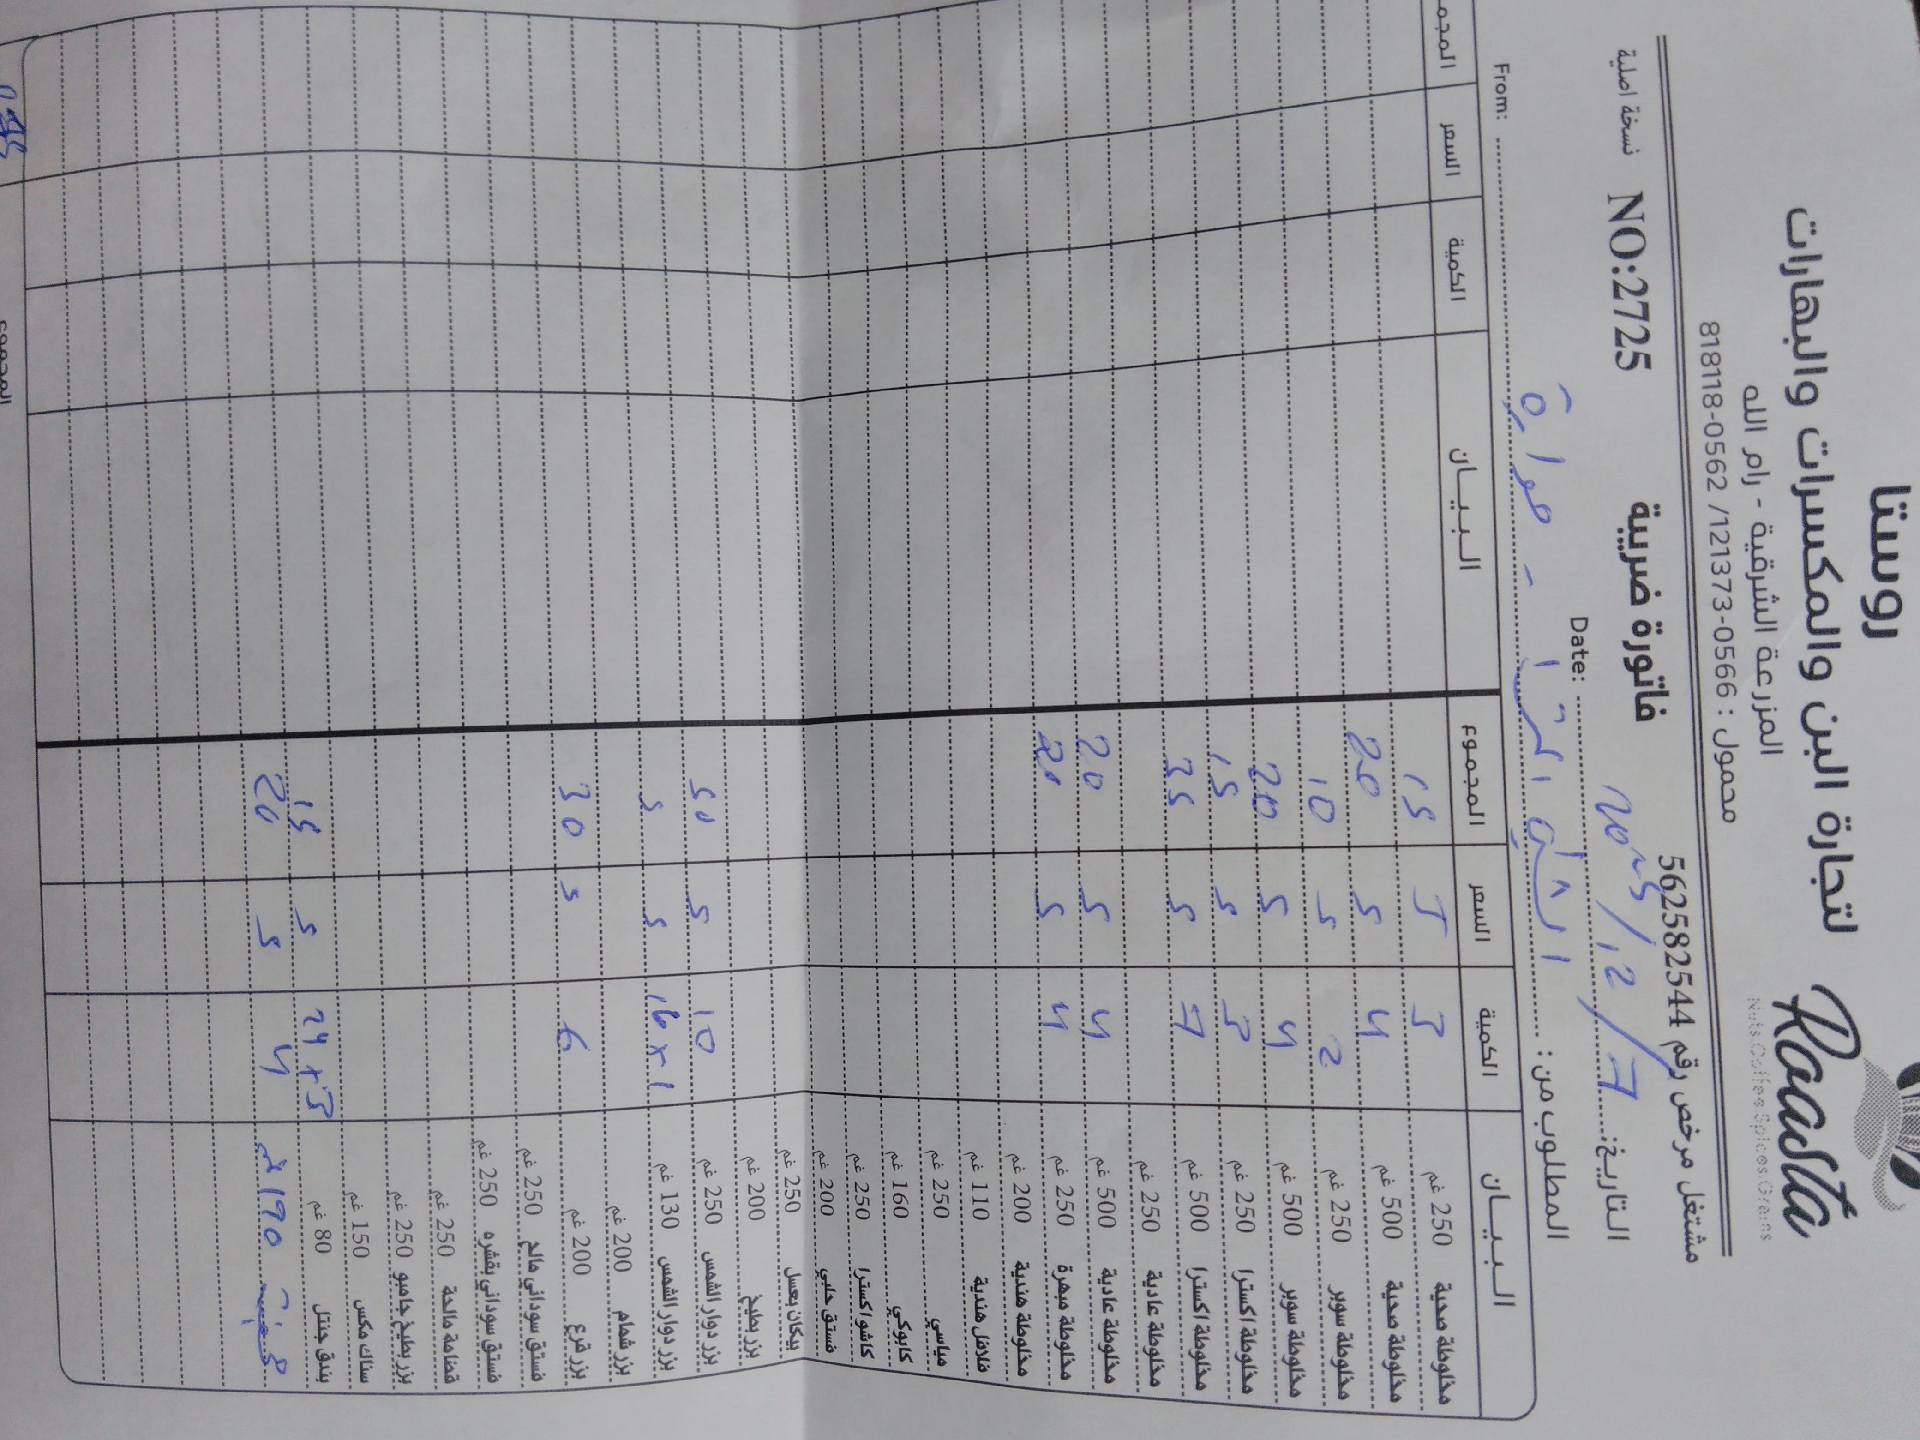 روستا
لتجارة البن والمكسرات والبهارات
Roasta
Nuts.Coffee.Spices.Grains
المزرعة الشرقية - رام الله
محمول : 0566-121373/ 0562-818118
مشتغل مرخص رقم 562582544 فاتورة ضريبة NO:2725 نسخة اصلية
التاريخ: 7/12/2025 Date:
المطلوب من: From:
البيان الكمية السعر المجموع البيان الكمية السعر المجم
مخلوطة صحية 250 غم 3 5 15
مخلوطة صحية 500 غم 4 5 20
مخلوطة سوبر 250 غم 2 5 10
مخلوطة سوبر 500 غم 4 5 20
مخلوطة اكسترا 250 غم 3 5 15
مخلوطة اكسترا 500 غم 7 5 35
مخلوطة عادية 250 غم
مخلوطة عادية 500 غم 4 5 20
مخلوطة مبهرة 250 غم 4 5 20
مخلوطة هندية 200 غم
فلافل هندية 110 غم
مياسي 250 غم
كابوكي 160 غم
كاشو اكسترا 250 غم
فستق حلبي 200 غم
بيكان بعسل 250 غم
بزر بطيخ 200 غم
بزر دوار الشمس 250 غم 10 5 50
بزر دوار الشمس 130 غم 16x1 5 5
بزر شمام 200 غم
بزر قرع 200 غم 6 5 30
فستق سوداني مالح 250 غم
فستق سوداني بقشره 250 غم
قضامة مالحة 250 غم
بزر بطيخ جامبو 250 غم
سناك مكس 150 غم
بندق جنتل 80 غم 24x3 5 15
190 غم 4 5 20
المجموع